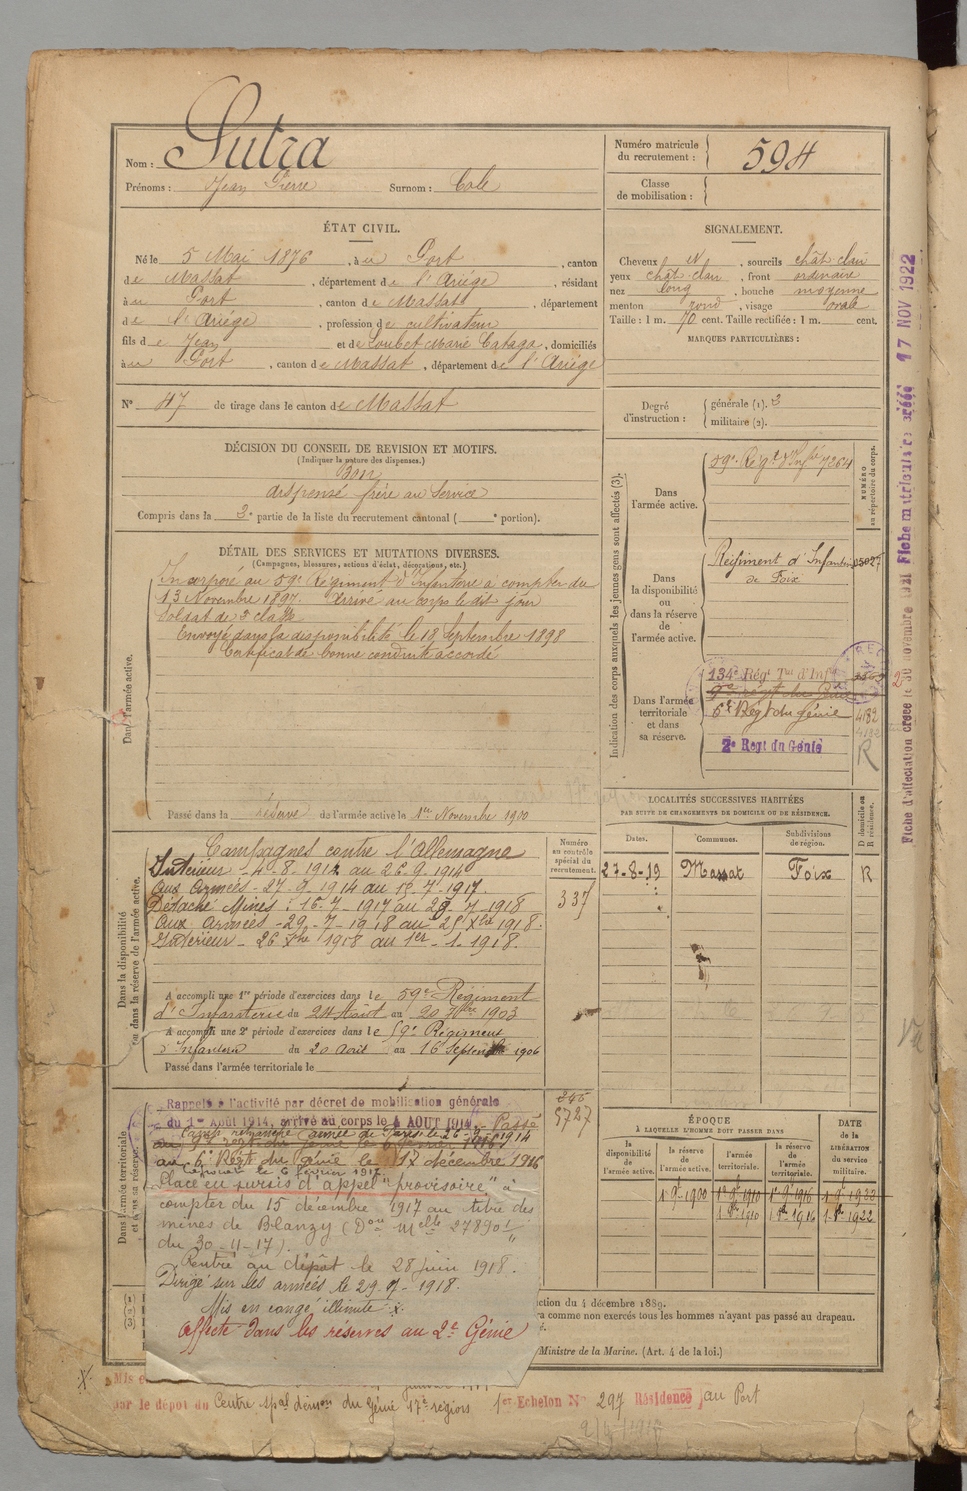 Nom : Sutra
Prénoms : Jean Pierre Surnom : Cale
Numéro matricule du recrutement : 594
Classe de mobilisation :
ÉTAT CIVIL.
Né le 5 Mai 1876, à u Port, canton
de Massat, département de l'Ariège, résidant
à u Port, canton de Massat, département
de l'Ariège, profession de cultivateur
fils de Jean et de Loubet Marie, domiciliés
à u Port, canton de Massat, département de l'Ariège
N° 47 de tirage dans le canton de Massat
SIGNALEMENT.
Cheveux N, sourcils chât-clair
yeux chât-clair, front ordinaire
nez long, bouche moyenne
menton rond, visage ovale
Taille : 1 m. 70 cent. Taille rectifiée : 1 m. cent.
MARQUES PARTICULIÈRES :
Degré d'instruction : générale (1). 3
militaire (2).
DÉCISION DU CONSEIL DE REVISION ET MOTIFS.
(Indiquer la nature des dispenses.)
Bon
dispensé frère au Service
Compris dans la 3e partie de la liste du recrutement cantonal ( e portion).
DÉTAIL DES SERVICES ET MUTATIONS DIVERSES.
(Campagnes, blessures, actions d'éclat, décorations, etc.)
Dans l'armée active.
Incorporé au 59e Régiment d'Infanterie à compter du
13 Novembre 1897. Arrivé au corps le dit jour
Soldat de 2e classe
Envoyé dans la disponibilité le 18 Septembre 1898
Certificat de bonne conduite accordé
Passé dans la réserve de l'armée active le 1er Novembre 1900
Indication des corps auxquels les jeunes gens sont affectés (3).
NUMÉRO au répertoire du corps.
Dans l'armée active.
59e Régt d'Infie 7264
Dans la disponibilité ou dans la réserve de l'armée active.
Régiment d'Infanterie
de Foix
Dans l'armée territoriale et dans sa réserve.
134e Régt Tal d'Inf
6e Regt du génie 4182
2e Regt du Génie R
Dans la disponibilité ou dans la réserve de l'armée active.
Campagnes contre l'Allemagne
Intérieur - 4-8-1914 au 26-9-1914
aux armées - 27-9-1914 au 15-7-1917.
Détaché Mines : 16-7-1917 au 28-7-1918
aux armées - 29-7-1918 au 25 Xbre 1918.
Intérieur - 26 Xbre 1918 au 1er-1-1918
A accompli une 1re période d'exercices dans le 59e Régiment
d'Infanterie du 24 Août au 20 7bre 1903
A accompli une 2e période d'exercices dans le 59e Régiment
d'Infanterie du 20 Août au 16 Septembre 1906
Passé dans l'armée territoriale le
Numéro au contrôle spécial du recrutement.
337
LOCALITÉS SUCCESSIVES HABITÉES
PAR SUITE DE CHANGEMENTS DE DOMICILE OU DE RÉSIDENCE.
Dates. Communes. Subdivisions de région. D domicile ou R résidence.
27-8-19 Massat Foix R
Dans l'armée territoriale et dans sa réserve.
Rappelé à l'activité par décret de mobilisation générale
du 1er Août 1914, arrivé au corps le 4 AOUT 1914. Passé
au 6e Régt du génie le 17 décembre 1916
Placé en sursis d'appel "provisoire" à
compter du 15 décembre 1917 au titre des
mines de Blanzy (Don Melle 27890
du 30-11-17).
Rentré au dépôt le 28 juin 1918.
Dirigé sur les armées le 29-7-1918.
Mis en congé illimité X.
Affecté dans les réserves au 2e Génie
5727
ÉPOQUE
À LAQUELLE L'HOMME DOIT PASSER DANS
la disponibilité de l'armée active. la réserve de l'armée active. l'armée territoriale. la réserve de l'armée territoriale.
DATE de la LIBÉRATION du service militaire.
1 9bre 1900 1 9bre 1910 1 9bre 1916 1 9bre 1922
ction du 4 décembre 1889.
ra comme non exercés tous les hommes n'ayant pas passé au drapeau.
Ministre de la Marine. (Art. 4 de la loi.)
par le dépôt du Centre spal démon du Génie 17e région 1er Echelon No 297 Résidence au Port
Fiche matriculaire créée 17 NOV 1922